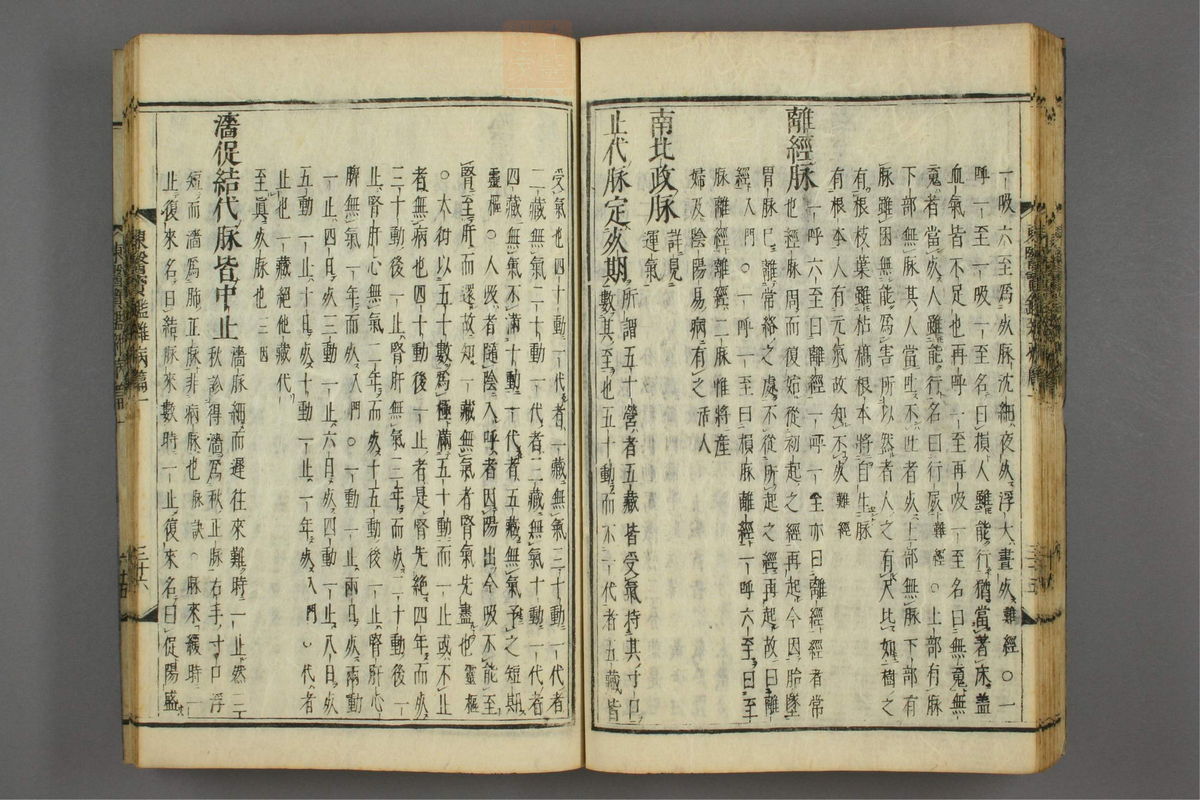 一吸六至爲死脉沈細夜死浮大晝死難經○一
呼一至一吸一至名曰損人雖能行猶當著床盖
血氣皆不足也再呼一至再吸一至名曰無䰟無
䰟者當死人雖能行名曰行尸難經○上部有脉
下部無脉其人當吐不吐者死上部無脉下部有
脉雖困無能爲害所以然者人之有尺比如樹之
有根枝葉雖枯槁根本將自生脉
有根本人有元氣故知不死難經
離經脉 一呼六至曰離經一呼一至亦曰離經經者常
也經脉周而復始從初起之經再起今因胎墜
胃脉已離常絡之處不從所起之經再起故曰離
經入門○一呼一至曰損脉離經一呼六至曰至
脉離經二脉惟將産
婦及陰陽易病有之活人
南北政脉 詳見
運氣
止代脉定死期 所謂五十營者五藏皆受氣持其寸口
數其至也五十動而不一代者五藏皆
受氣也四十動一代者一藏無氣三十動一代者
二藏無氣二十動一代者三藏無氣十動一代者
四藏無氣不滿十動一代者五藏無氣予之短期
靈樞○人吸者隨陰入呼者因陽出今吸不能至
腎至肝而還故知一藏無氣者腎氣先盡也靈樞
○大衍以五十數爲極滿五十動而一止或不止
者無病也四十動後一止者是腎先絶四年而死
三十動後一止腎肝無氣三年而死二十動後一
止腎肝心無氣二年而死十五動後一止腎肝心
脾無氣一年而死入門○一動一止兩日死兩動
一止四日死三動一止六日死四動一止八日死
五動一止十日死十動一止一年死入門○代者
止也一藏絶他藏代
至眞死脉也三因
濇促結代脉皆中止 濇脉細而遲往來難時一止然三
秋診得濇爲秋正脉右手寸口浮
短而濇爲肺正脉非病脉也脉訣○脉來緩時一
止復來名曰結脉來數時一止復來名曰促陽盛
東醫寶鑑雜病篇一
三十六